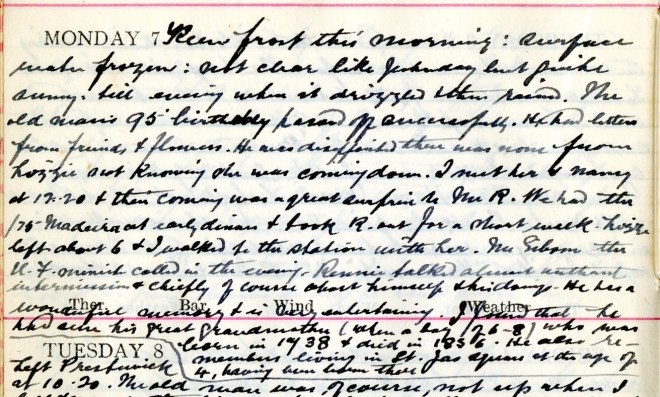 MONDAY 7 Keen frost this morning: surface
water frozen: not clear like yesterday but quite
sunny till evening when it drizzled & then rained. The
old man's 95 birthday passed off successfully. He had letters
from friends & flowers. He was disappointed there was none from
Lizzie not knowing she was coming down. I met her & Nancy
at 12.20 & their coming was a great surprise to Mr R. We had the
/75 Madeira at early dinner & took R. out for a short walk. Lizzie
left about 6 & I walked to the station with her. Mr Gibson the
U.F. minister called in the evening. Rennie talked almost without
intermission & chiefly of course about himself & his doings. He has a
wonderful memory & is very entertaining. I found that he
Ther. Bar. Wind Weather
had seen his great grandmother (when a boy /26-8) who was
born in 1738 & died in 1836. He also re-
TUESDAY 8 members living in St. Jas Square at the age of
4, having been born there
Left Prestwick
at 10-20. The old man was, of course, not up when I